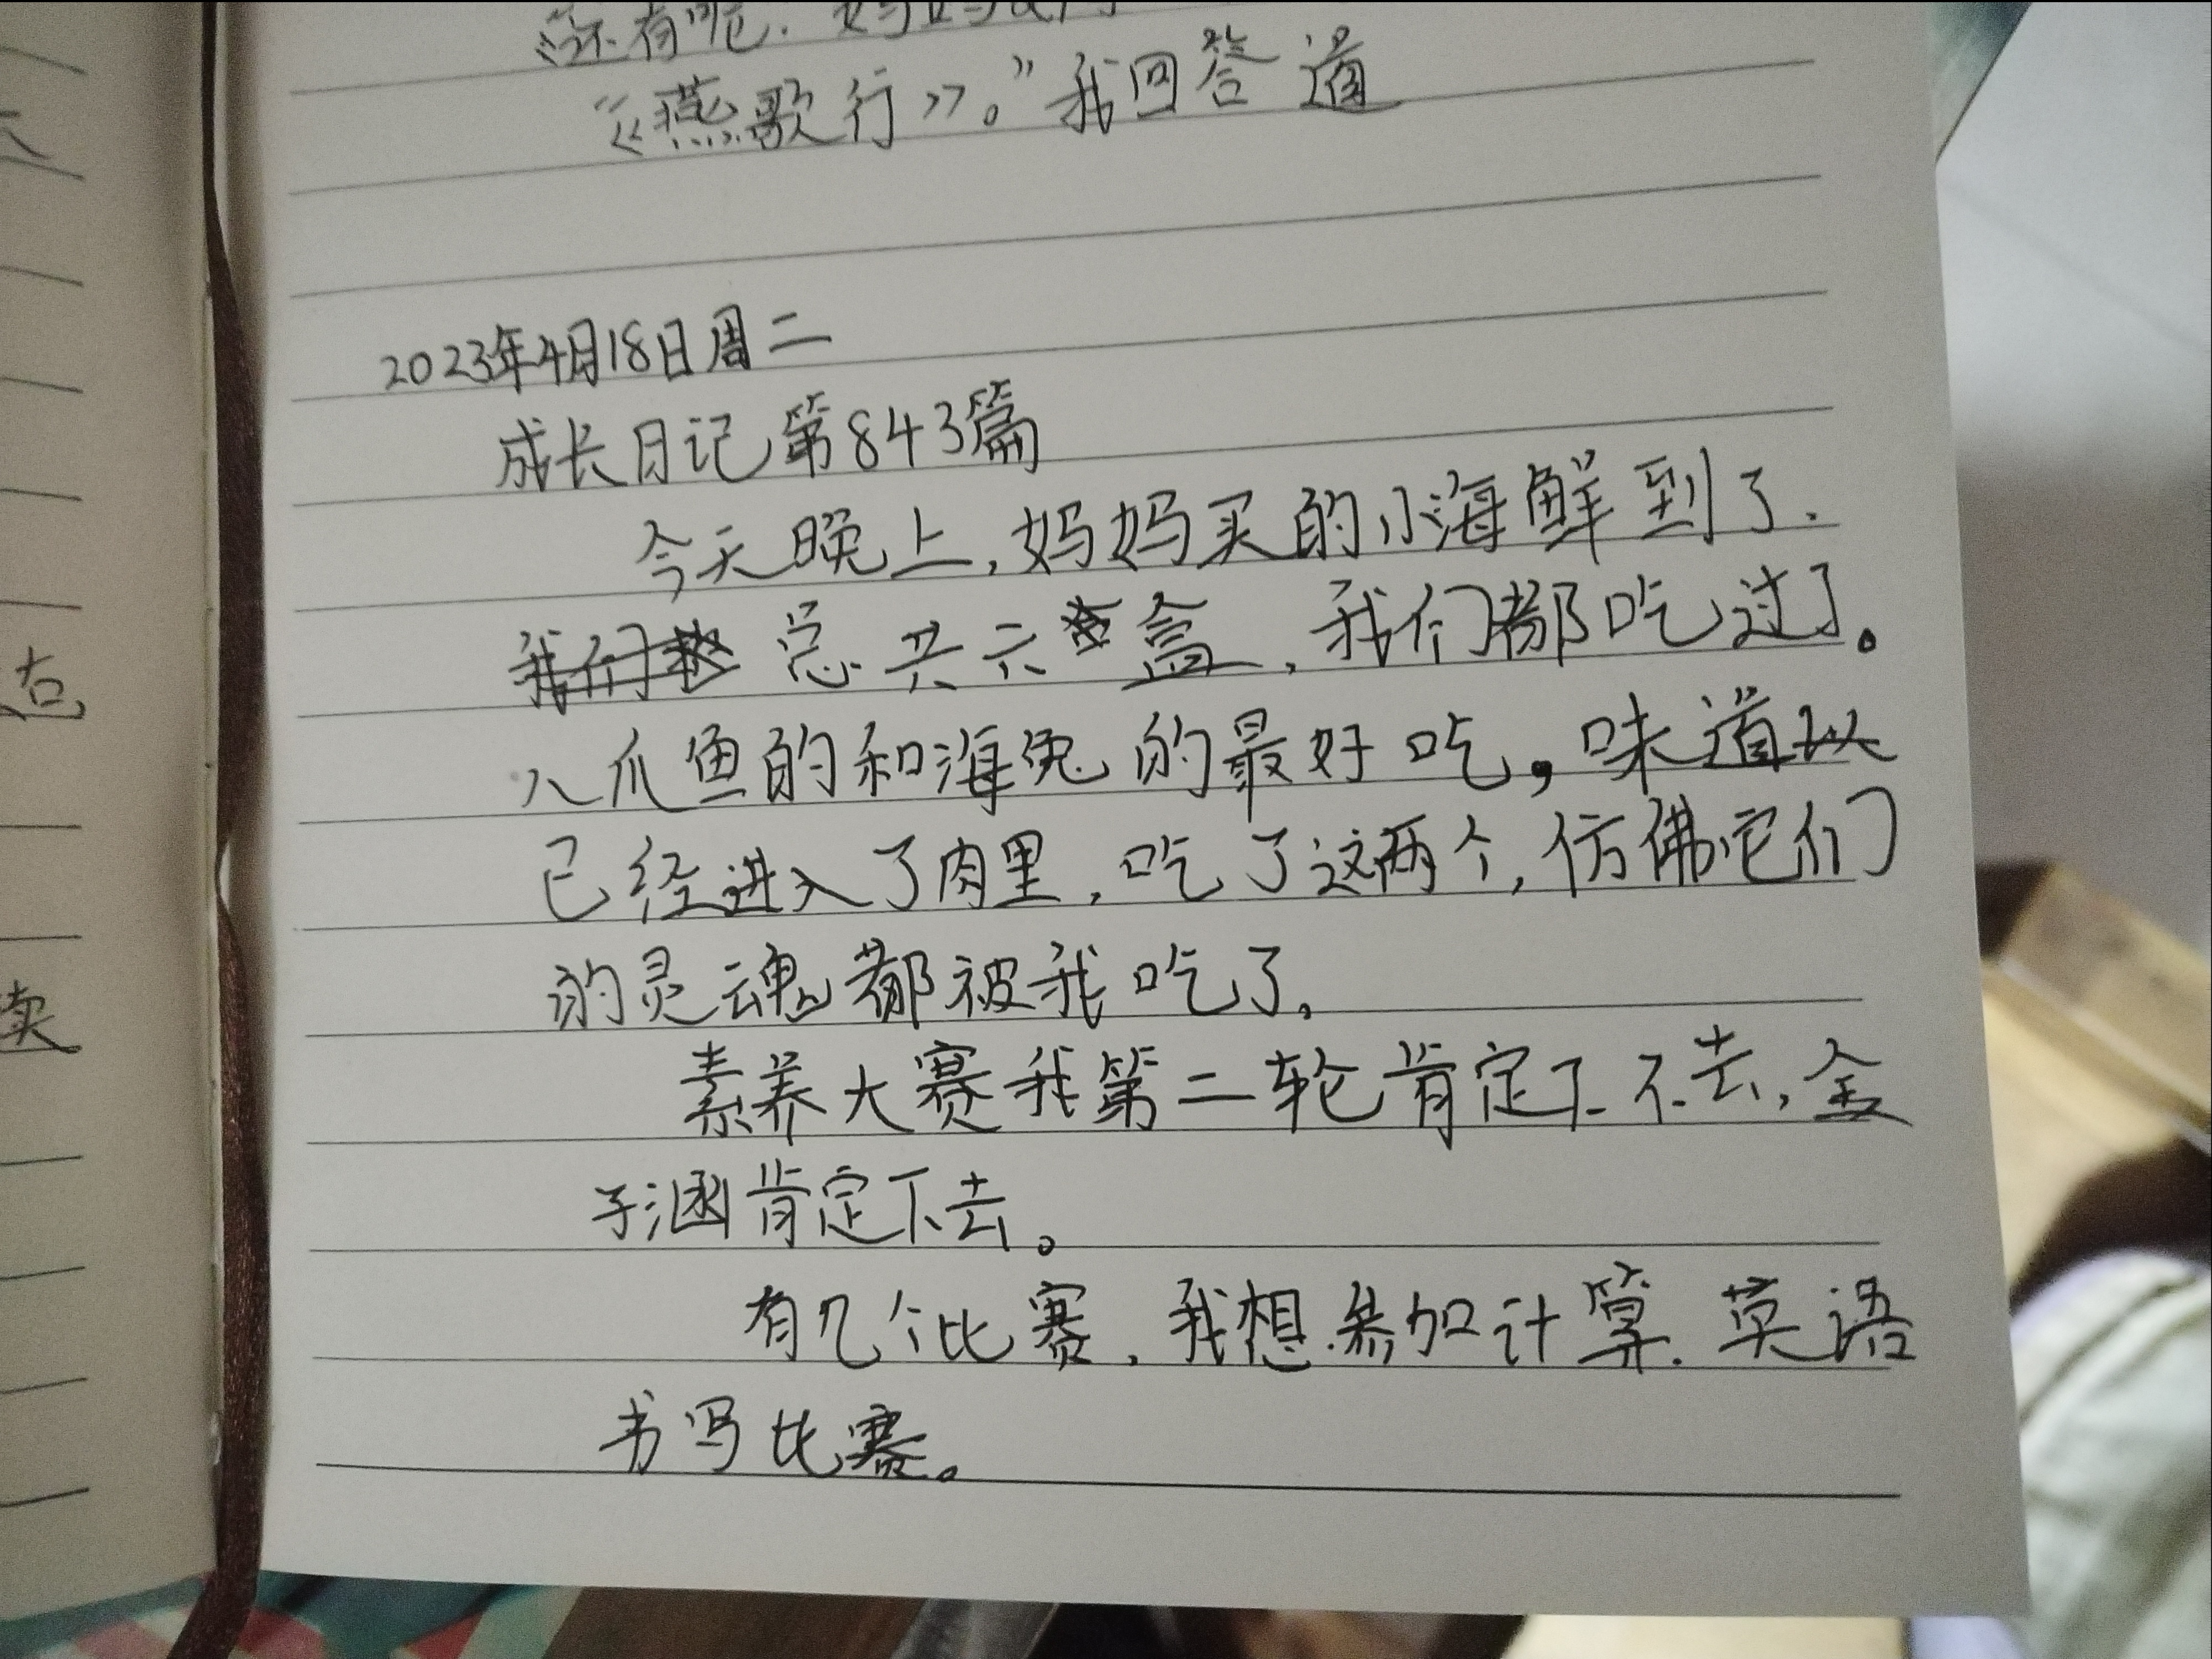 “还有呢.妈妈
“《燕歌行》。”我回答道
2023年4月18日周二
成长日记第843篇
今天晚上,妈妈买的小海鲜到了.
总共六盒,我们都吃过了。
八爪鱼的和海兔的最好吃,味道
已经进入了肉里,吃了这两个,仿佛它们
的灵魂都被我吃了.
素养大赛我第二轮肯定下不去,金
子涵肯定下去。
有几个比赛,我想参加计算.英语
书写比赛。
读